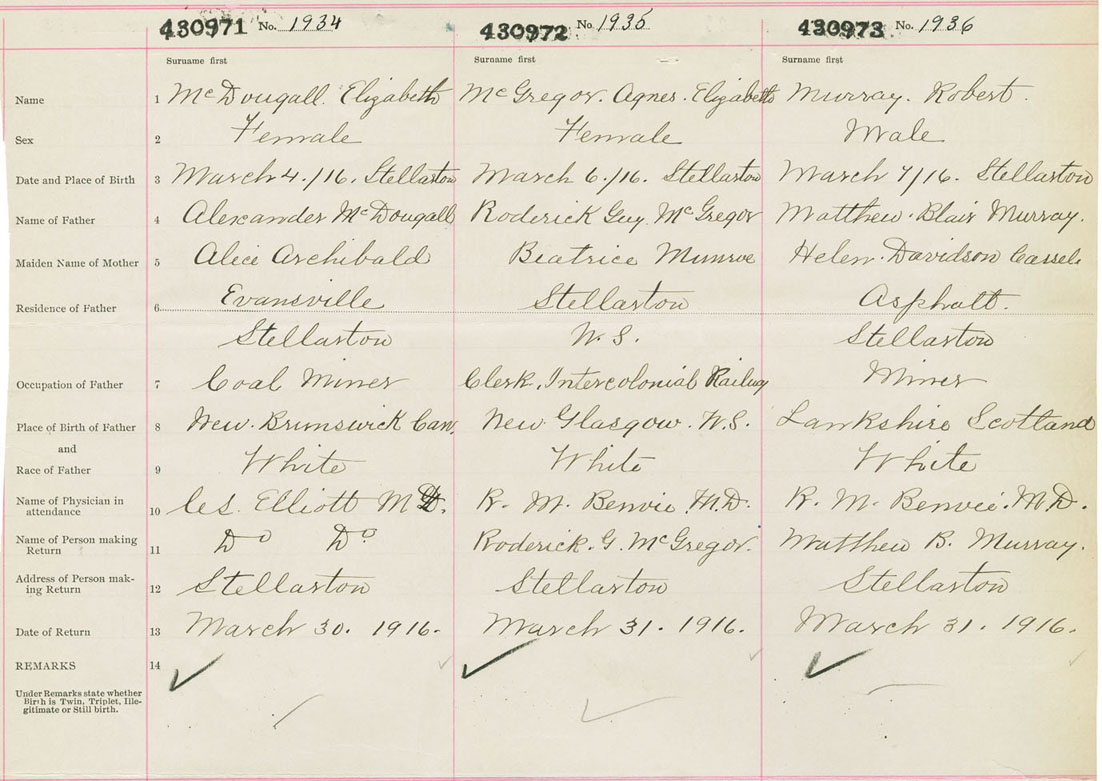 430971 No. 1934 430972 No. 1935 430973 No. 1936
Surname first Surname first Surname first
Name 1 McDougall. Elizabeth McGregor. Agnes. Elizabeth Murray. Robert.
Sex 2 Female Female Male
Date and Place of Birth 3 March 4./16. Stellarton March 6./16. Stellarton March 7/16. Stellarton
Name of Father 4 Alexander McDougall Roderick Guy McGregor Matthew. Blair Murray.
Maiden Name of Mother 5 Alice Archibald Beatrice Munroe Helen. Davidson Cassels
Residence of Father 6 Evansville Stellarton Asphalt.
Stellarton N.S. Stellarton
Occupation of Father 7 Coal Miner Clerk, Intercolonial Railway Miner
Place of Birth of Father 8 New. Brunswick Can. New Glasgow. N.S. Lankshire Scotland
and
Race of Father 9 White White White
Name of Physician in
attendance 10 Elliott M.D. R. M. Benvie, M.D. R. M. Benvie. M.D.
Name of Person making
Return 11 Do Do Roderick. G. McGregor. Matthew B. Murray.
Address of Person mak-
ing Return 12 Stellarton Stellarton Stellarton
Date of Return 13 March 30. 1916. March 31. 1916. March 31. 1916.
REMARKS 14
Under Remarks state whether
Birth is Twin, Triplet, Ille-
gitimate or Still birth.